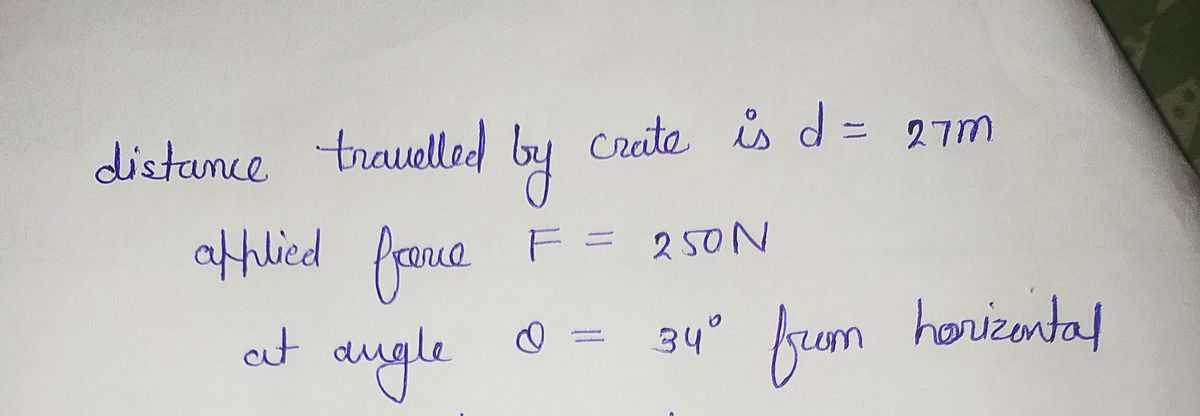 distance travelled by crate is d = 27m
applied force F = 250N
at angle θ = 34° from horizontal